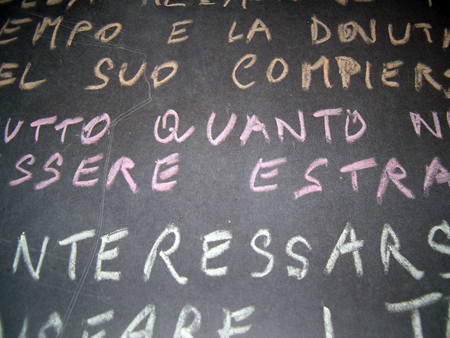 EMPO E LA DONUT
EL SUO COMPIERS
UTTO QUANTO N
SSERE ESTRA
NTERESSARS